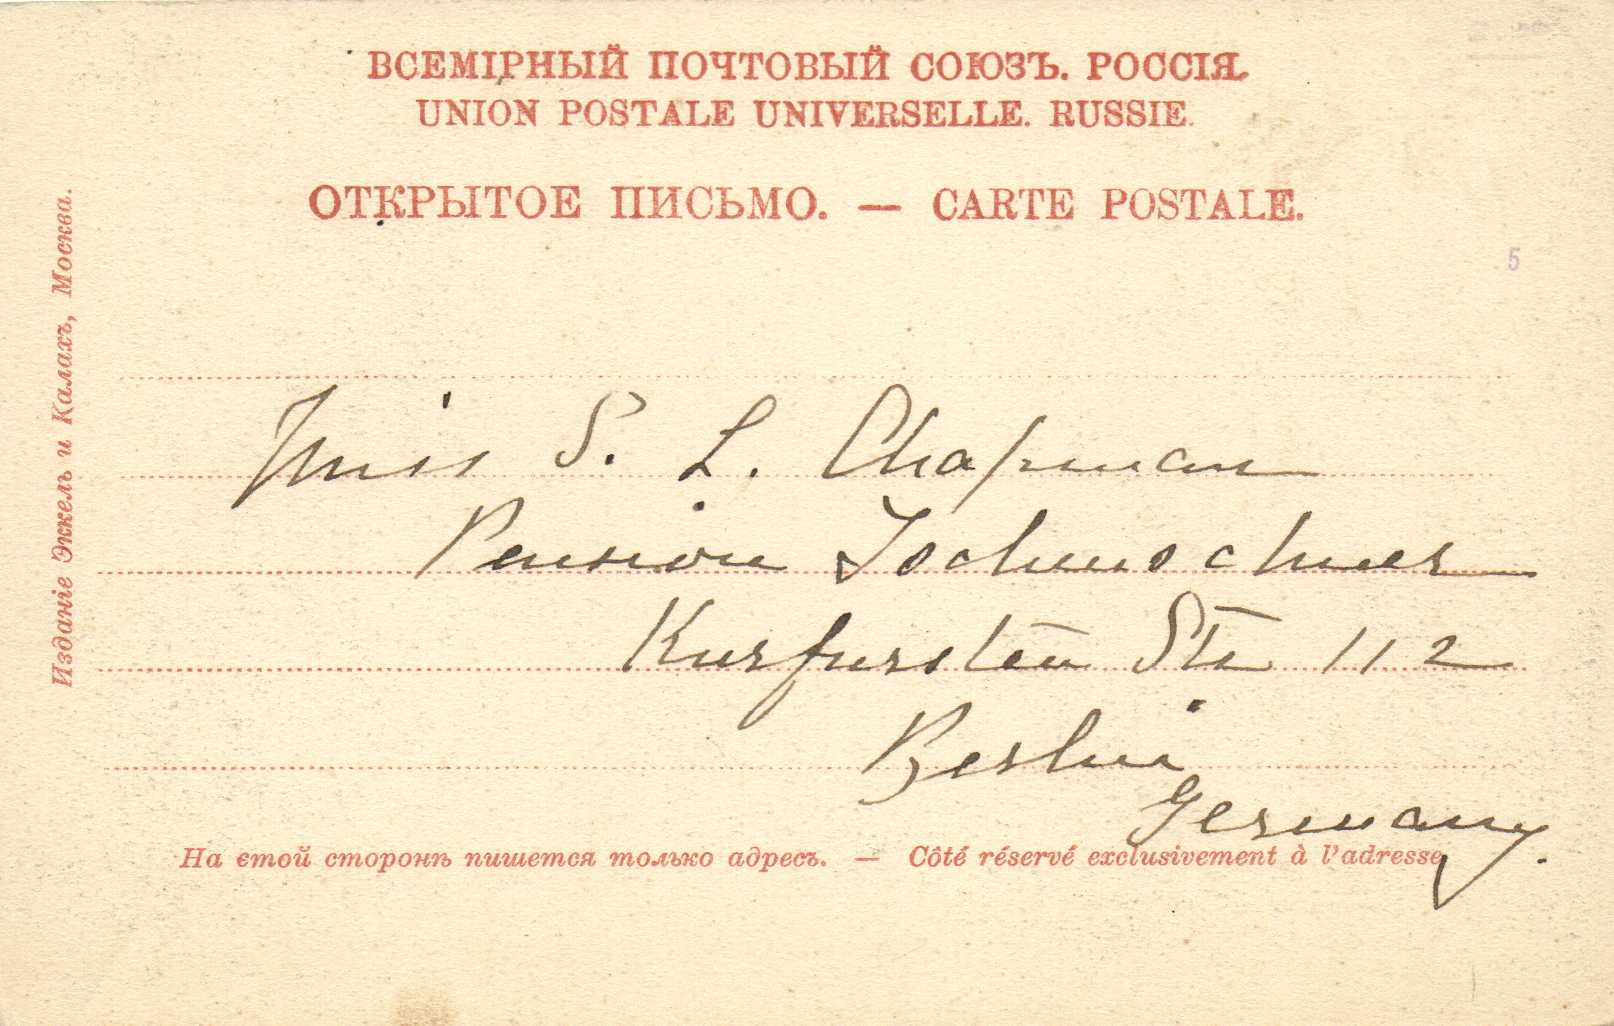 ВСЕМІРНЫЙ ПОЧТОВЫЙ СОЮЗЪ. РОССІЯ.
UNION POSTALE UNIVERSELLE. RUSSIE.
ОТКРЫТОЕ ПИСЬМО. — CARTE POSTALE.
5
Miss S. L. Chapman
Pension
Kurfursten Str 112
Berlin
Germany.
На етой сторонѣ пишется только адресъ. — Côté réservé exclusivement à l'adresse
Изданіе Эккель и Калахъ, Москва.